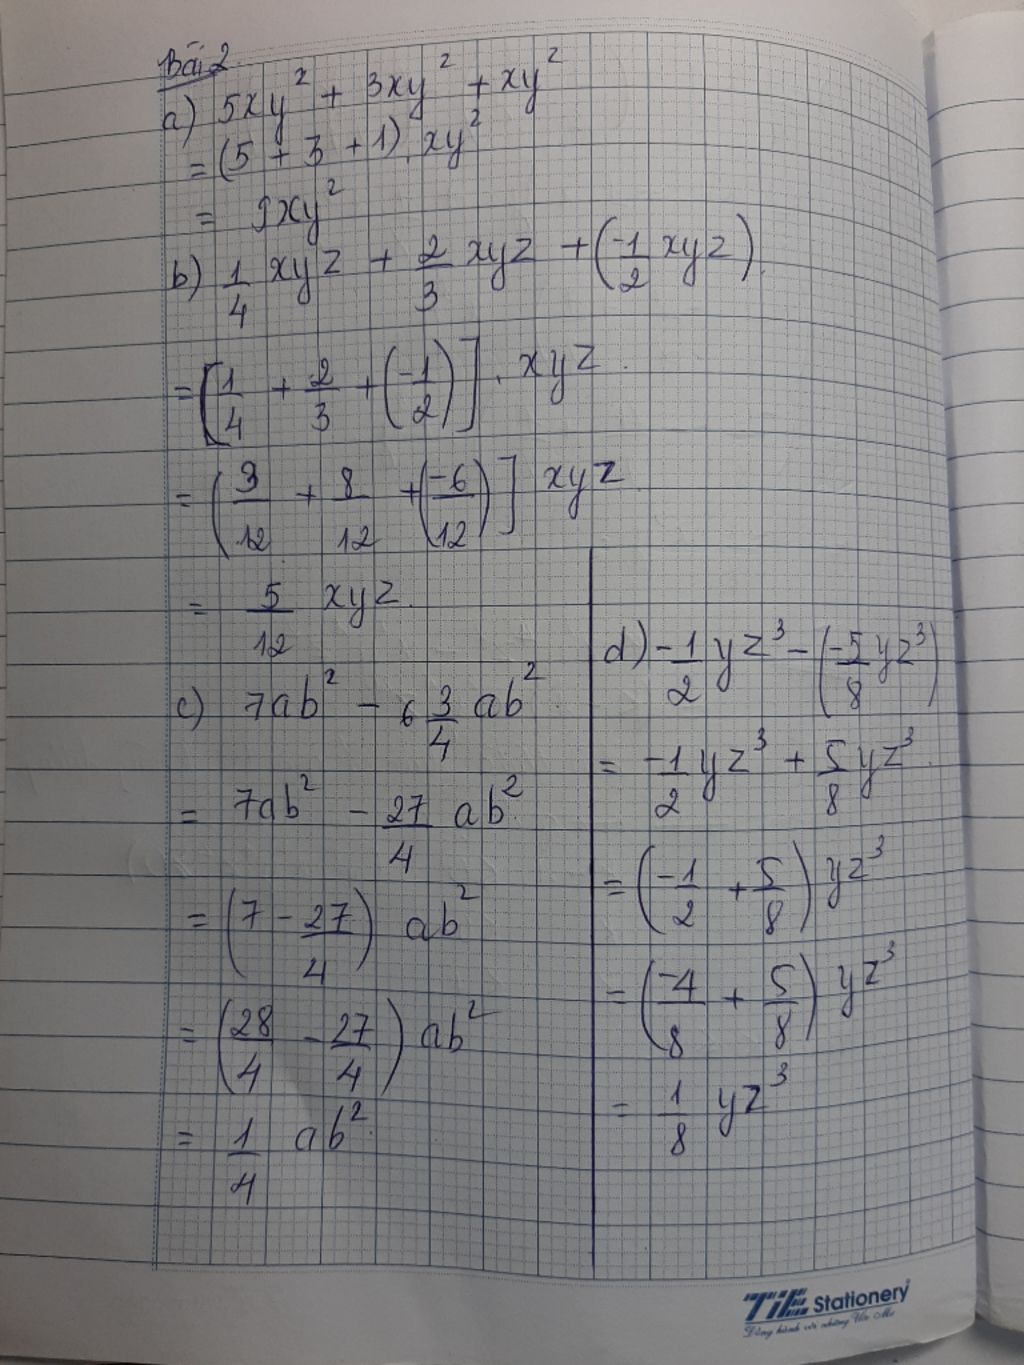 Bài 2
a) 5xy² + 3xy² + xy²
= (5 + 3 + 1). xy²
= 9xy²
b) 1/4 xyz + 2/3 xyz + (-1/2 xyz)
= [1/4 + 2/3 + (-1/2)] . xyz.
= (3/12 + 8/12 + (-6/12)] xyz
= 5/12 xyz.
c) 7ab² - 6 3/4 ab²
= 7ab² - 27/4 ab²
= (7 - 27/4) ab²
= (28/4 - 27/4) ab²
= 1/4 ab²
d) -1/2 yz³ - (-5/8 yz³)
= -1/2 yz³ + 5/8 yz³.
= (-1/2 + 5/8) yz³
= (-4/8 + 5/8) yz³
= 1/8 yz³
TiE Stationery
Đồng hành với những Ước Mơ